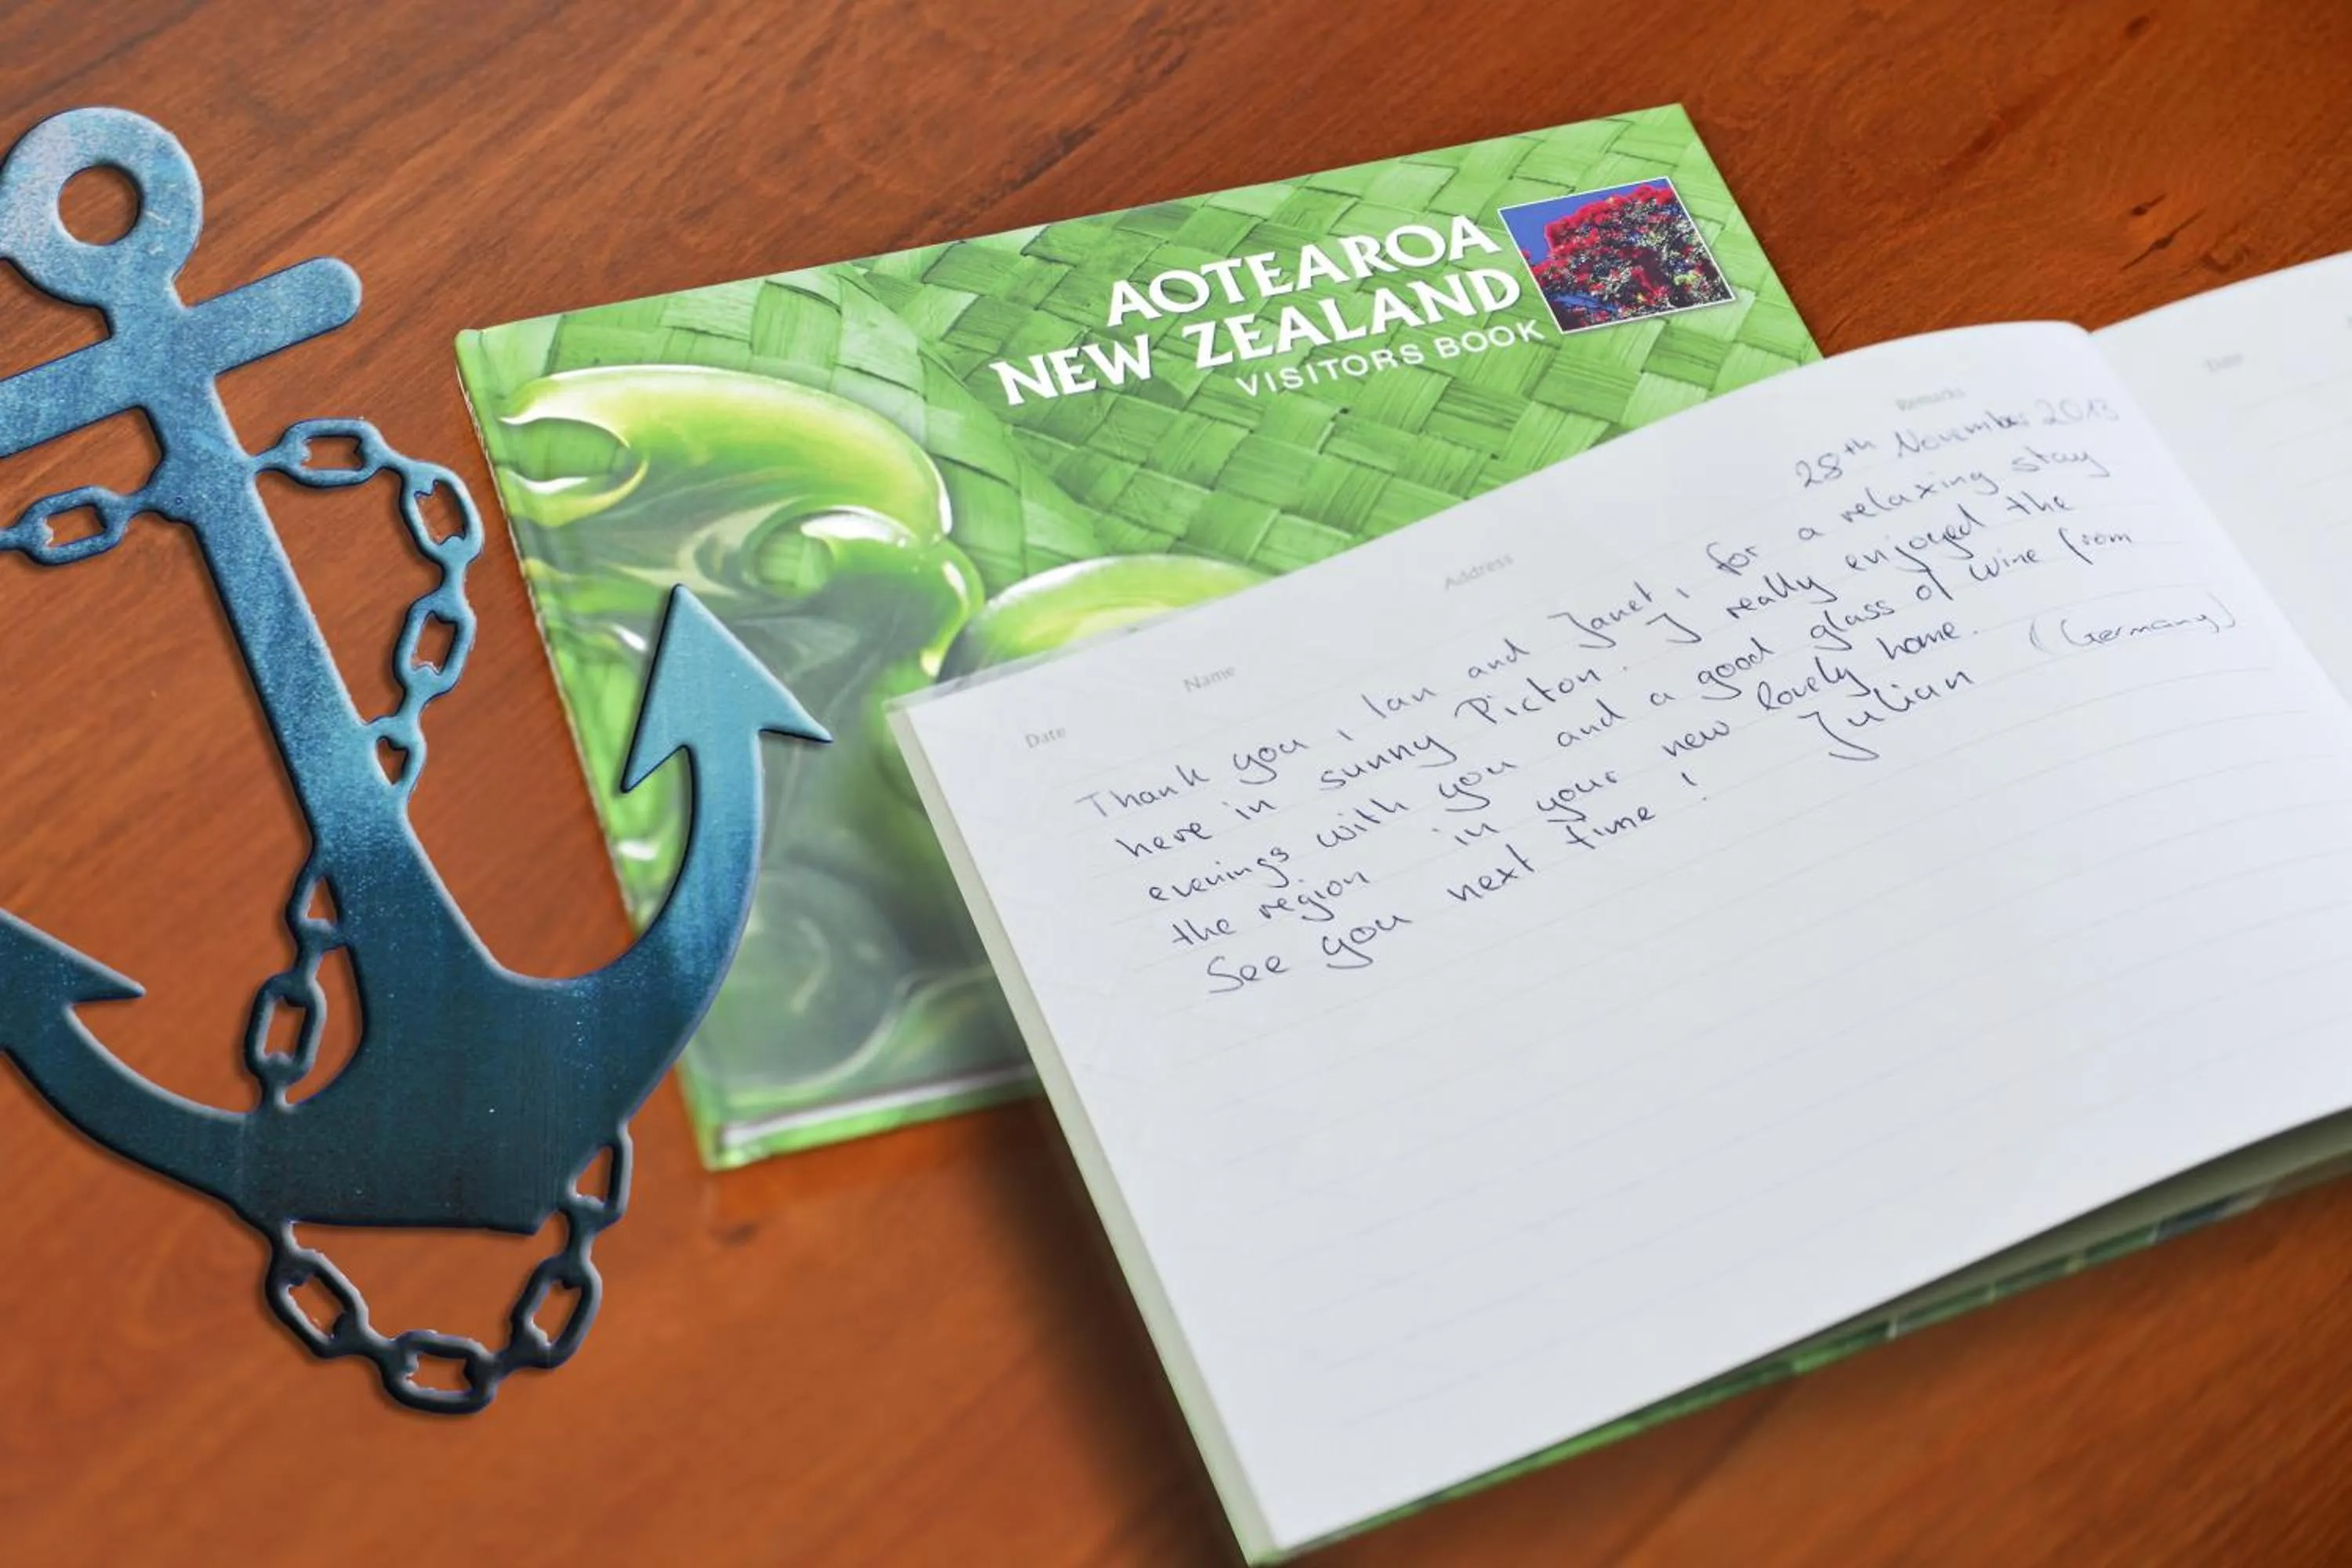 AOTEAROA
NEW ZEALAND
VISITORS BOOK
Date
Name
Address
Remarks
Date
28th November 2013
Thank you, Ian and Janet, for a relaxing stay
here in sunny Picton. I really enjoyed the
evenings with you and a good glass of wine from
the region in your new lovely home.
See you next time! Julian (Germany)